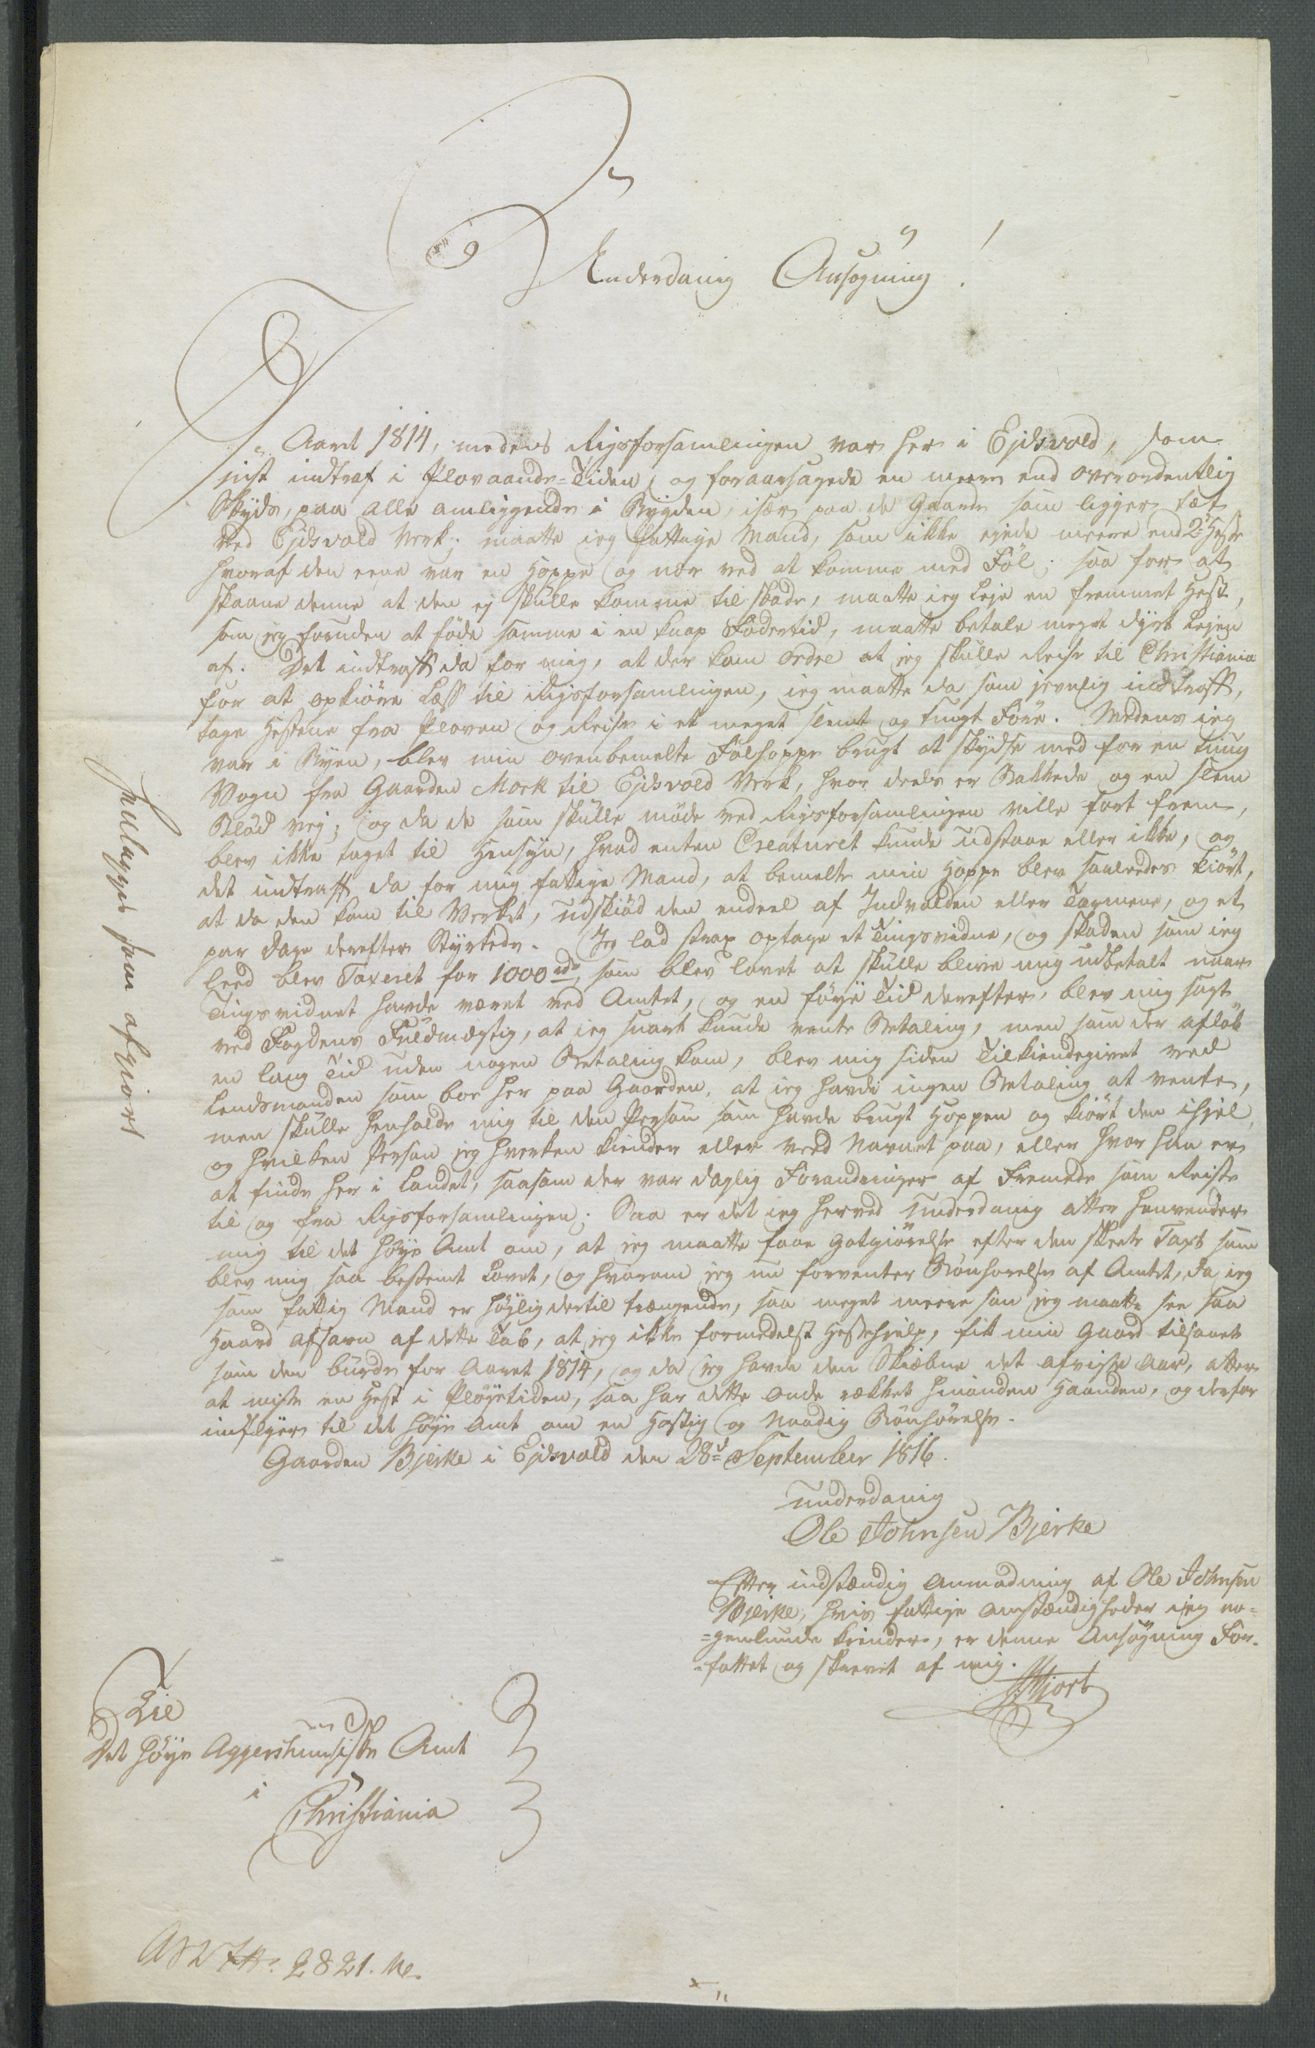 Underdanig Ansøgning!
I Aaret 1814, medens Rigsforsamlingen var her i Ejdsvold, som
just indtraf i Plovaands-Tiden, og foraarsagede en meere end overordentlig
Skyds, paa alle omliggende i Bygden, især paa de Gaarde som ligger tæt
ved Ejdsvold Verk; maatte jeg fattige Mand, som ikke ejede meere end 2de Heste
hvoraf den eene var en Hoppe og nær ved at komme med Föl; saa for at
skaane denne at den ej skulle komme til skade, maatte jeg leje en fremmet Hest,
som jeg foruden at föde samme i en knap Fodertid, maatte betale meget dyrt Lejen
af. Det indtraff da for mig, at der kom ordre at jeg skulle Reise til Christiania
for at opkiöre Læss til Rigsforsamlingen, jeg maatte da som jevnlig indtraff,
tage Hestene fra Ploven og Reise i et meget slemt og tungt Före. Medens jeg
var i Byen, blev min ovenbemelte Fölhoppe brugt at skydse med for en tung
Vogn fra Gaarden Mork til Ejdsvold Verk, hvor deels er Bakkede og en slem
Blöd vej; og da de som skulle möde ved Rigsforsamlingen ville fort frem,
blev ikke taget til Hensyn, hvad enten Creaturet kunde udstaae eller ikke, og
det indtraff da for mig fattige Mand, at bemelte min Hoppe blev saaledes kiört,
at da den kom til Verket, udskiöd den endeel af Indvolden eller Tarmene, og et
par Dage derefter Styrtede. Jeg lod strax optage et Tingsvidne, og skaden som jeg
leed blev Taxeret for 1000 rdr, som blev lovet at skulle blive mig udbetalt naar
Tingsvidnet havde været ved Amtet, og en föye Tid derefter, blev mig sagt
ved Fogdens Fuldmægtig, at jeg snart kunde vente Betaling, men som der aflöb
en lang Tid uden nogen Betaling kom, blev mig siden Tilkiendegivet ved
Lendsmanden som boer her paa Gaarden, at jeg havde ingen Betaling at vente,
men skulle henholde mig til den Person som havde brugt Hoppen og kiört den ihjel,
og hvilken Person jeg hverken kiender eller veed Navnet paa, eller hvor han er
at finde her i Landet, saasom der var daglig Forandringer af Fremede som Reiste
til og fra Rigsforsamlingen; Saa er det jeg herved underdanig atter henvender
mig til det Höye Amt om, at jeg maatte faae Gotgiörelse efter den skeete Taxt som
blev mig saa bestemt lovet, og hvorom jeg nu forventer Bönhörelse af Amtet, da jeg
som fattig Mand er höylig dertil trængende, saa meget meere som jeg maatte see saa
haard afsavn af dette Tab, at jeg ikke formedelst Hestehielp, fik min Gaard tilsaaet
som den burde for Aaret 1814, og da jeg havde den Skiæbne det afvigte Aar, atter
at miste en Hest i Plöyetiden, saa har dette onde rækket hinanden Haanden, og derfor
indflyer til det Höye Amt om en Hastig og Naadig Bönhörelse.
Gaarden Bjerke i Ejdsvold den 28d September 1816.
underdanig
Ole Johnsen Bjerke
Efter indstændig Anmodning af Ole Johnsen
Bjerke, hvis fattige omstændigheder jeg no-
=genlunde kiender, er denne Ansøgning For-
=fattet og skrevet af mig.
Hjort
Til
Det höye Aggershuusiske Amt
i
Christiania
Henlægges som afgiort
2821.